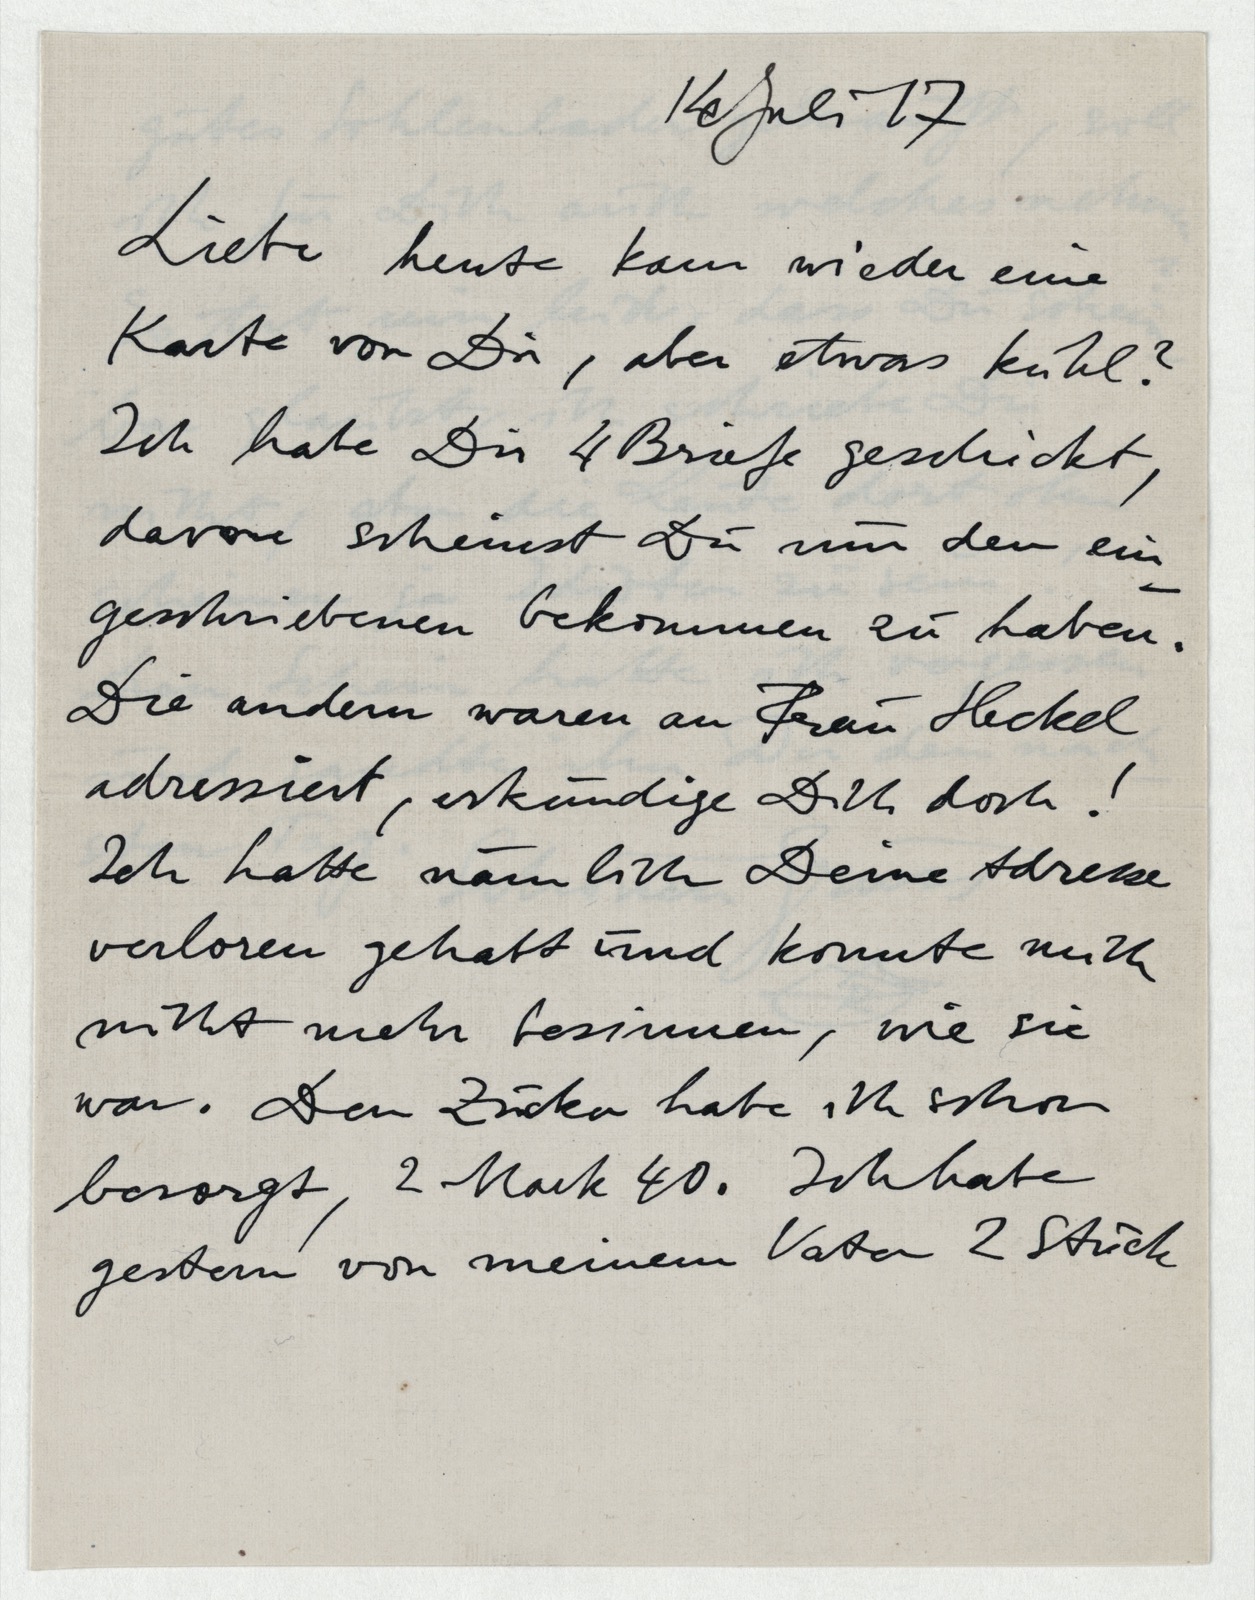 14 Juli 17
Liebe heute kam wieder eine
Karte von Dir, aber etwas kühl?
Ich habe Dir 4 Briefe geschickt,
davon scheinst Du nur den ein-
geschriebenen bekommen zu haben.
Die andern waren an Frau Heckel
adressiert, erkundige Dich doch!
Ich hatte nämlich Deine Adresse
verloren gehabt und konnte mich
nicht mehr besinnen, wie sie
war. Den Zucker habe ich schon
besorgt, 2 Mark 40. Ich habe
gestern von meinem Vater 2 Stück